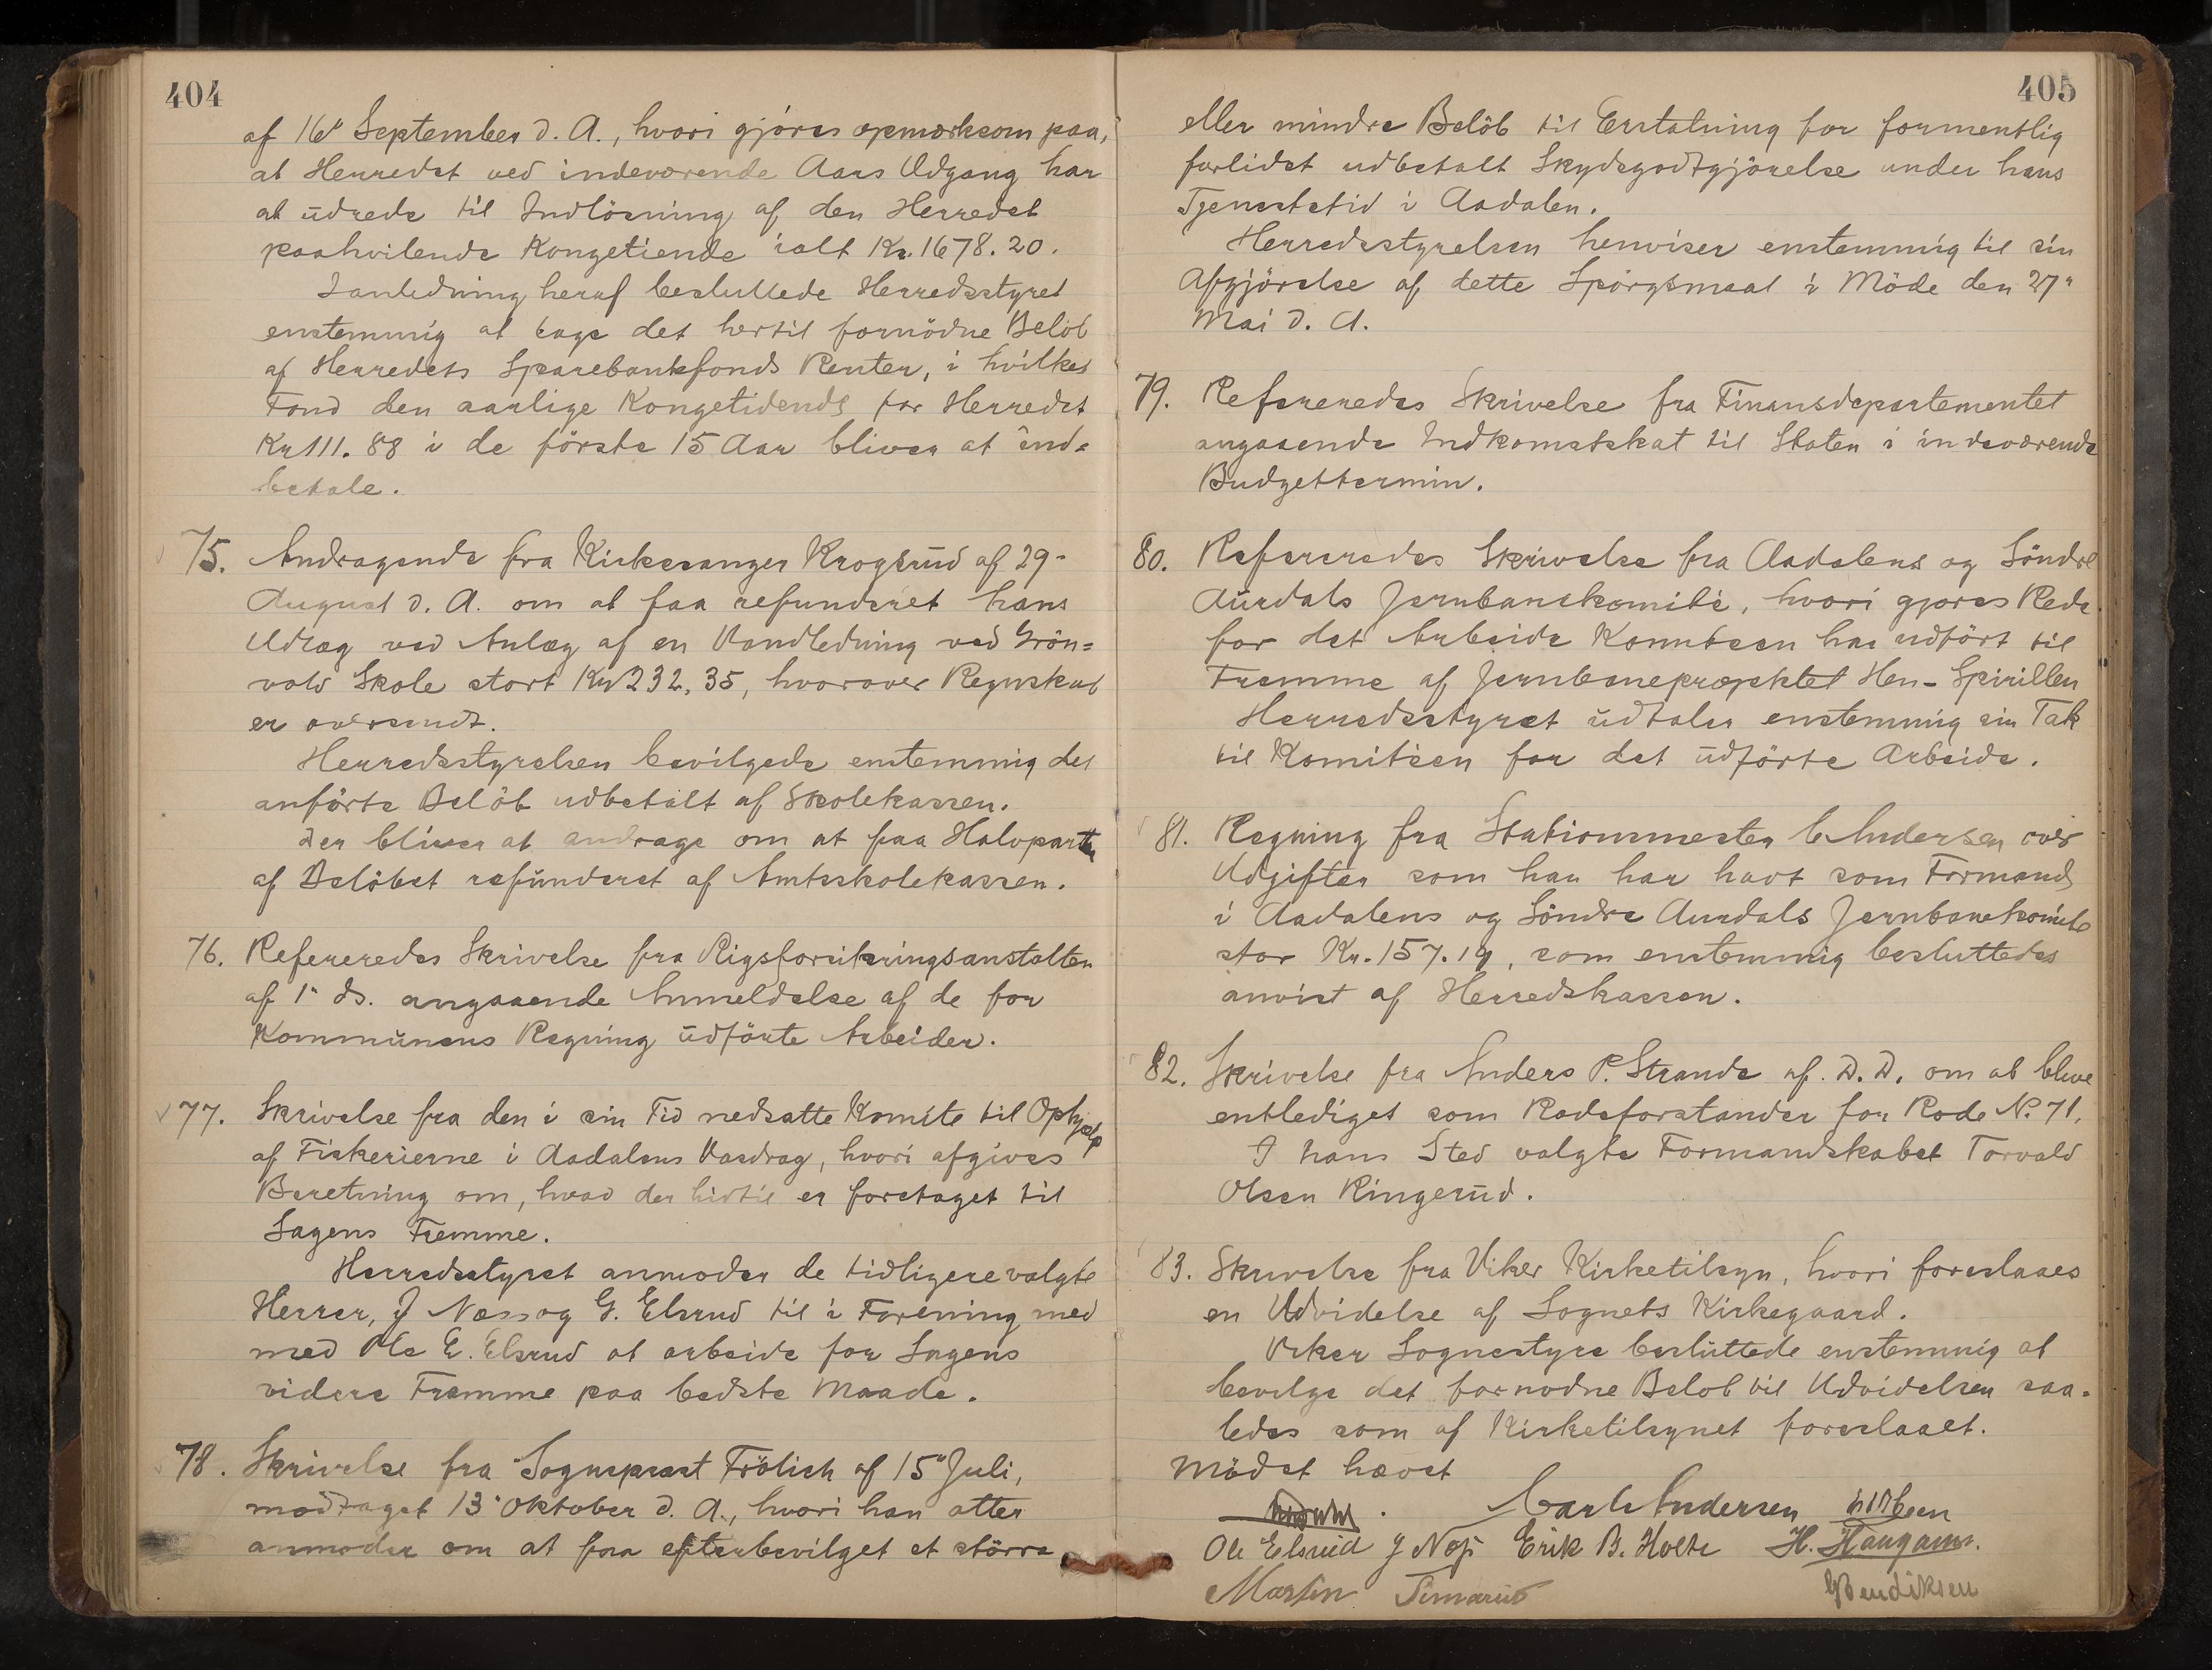 404
af 16de September d. A., hvori gjøres opmerksom paa,
at Herredet ved indeværende Aars Udgang har
at udrede til Indlösning af den Herredet
paahvilende Kongetiende ialt Kr. 1678.20.
Ianledning heraf besluttede Herredsstyret
enstemmig at tage det hertil fornödne Belöb
af Herredets Sparebankfonds Renter, i hvilket
Fond den aarlige Kongetidende for Herredet
Kr 111.88 i de förste 15 Aar bliver at ind=
betale.
75. Andragende fra Kirkesanger Krogsrud af 29-
August d. A. om at faa refunderet hans
Udlæg ved Anlæg af en Vandledning ved Grön=
vold Skole stort Kr 232,35, hvorover Regnskab
er oversendt.
Herredsstyrelsen bevilgede enstemmig det
anförte Belöb udbetalt af Skolekassen.
Der bliver at andrage om at faa Halvparten
af Belöbet refunderet af Amtsskolekassen.
76. Refereredes Skrivelse fra Rigsforsikringsanstalten
af 1" ds. angaaende Anmeldelse af de for
Kommunens Regning udförte Arbeider.
77. Skrivelse fra den i sin Tid nedsatte Komite til Ophjælp
af Fiskerierne i Aadalens Vasdrag, hvori afgives
Beretning om, hvad der hidtil er foretaget til
Sagens Fremme.
Herredsstyret anmoder de tidligere valgte
Herrer, J Næss og G. Elsrud til i Forening med
med Ole E. Elsrud at arbeide for Sagens
videre Fremme paa bedste Maade.
78. Skrivelse fra Sogneprest Frölich af 15" Juli,
modtaget 13" Oktober d. A., hvori han atter
anmoder om at faa efterbevilget et större
405
eller mindre Belöb til Erstatning for formentlig
forlidet udbetalt Skydsgodtgjörelse under hans
Tjenestetid i Aadalen.
Herredsstyrelsen henviser enstemmig til sin
Afgjörelse af dette Spörgsmaal i Möde den 27"
Mai d. A.
79. Refereredes Skrivelse fra Finansdepartementet
angaaende Indkomstskat til Staten i indeværende
Budgettermin.
80. Refereredes Skrivelse fra Aadalens og Söndre
Aurdals Jernbanekomite, hvori gjøres Rede
for det Arbeide Komiteen har udfört til
Fremme af Jernbaneprojektet Hen-Spirillen
Herredsstyret udtaler enstemmig sin Tak
til Komiteen for det udförte Arbeide.
81. Regning fra Stationsmester C Andersen over
Udgifter som han har havt som Formand
i Aadalens og Söndre Aurdals Jernbanekomite
stor Kr. 157.19, som enstemmig besluttedes
anvist af Herredskassen.
82. Skrivelse fra Anders P. Strande af. D. D. om at blive
entlediget som Rodeforstander for Rode No. 71.
I hans Sted valgte Formandskabet Torvald
Olsen Ringerud.
83. Skrivelse fra Viker Kirketilsyn, hvori foreslaaes
en Udvidelse af Sognets Kirkegaard.
Viker Sognestyre besluttede enstemmig at
bevilge det fornødne Beløb til Udvidelsen saa=
ledes som af Kirketilsynet foreslaaet.
Mödet hævet
Carl Andersen
Ole Elsrud J Næss Erik B. Holte H. Haugann.
Martin Simarud GBendiksen